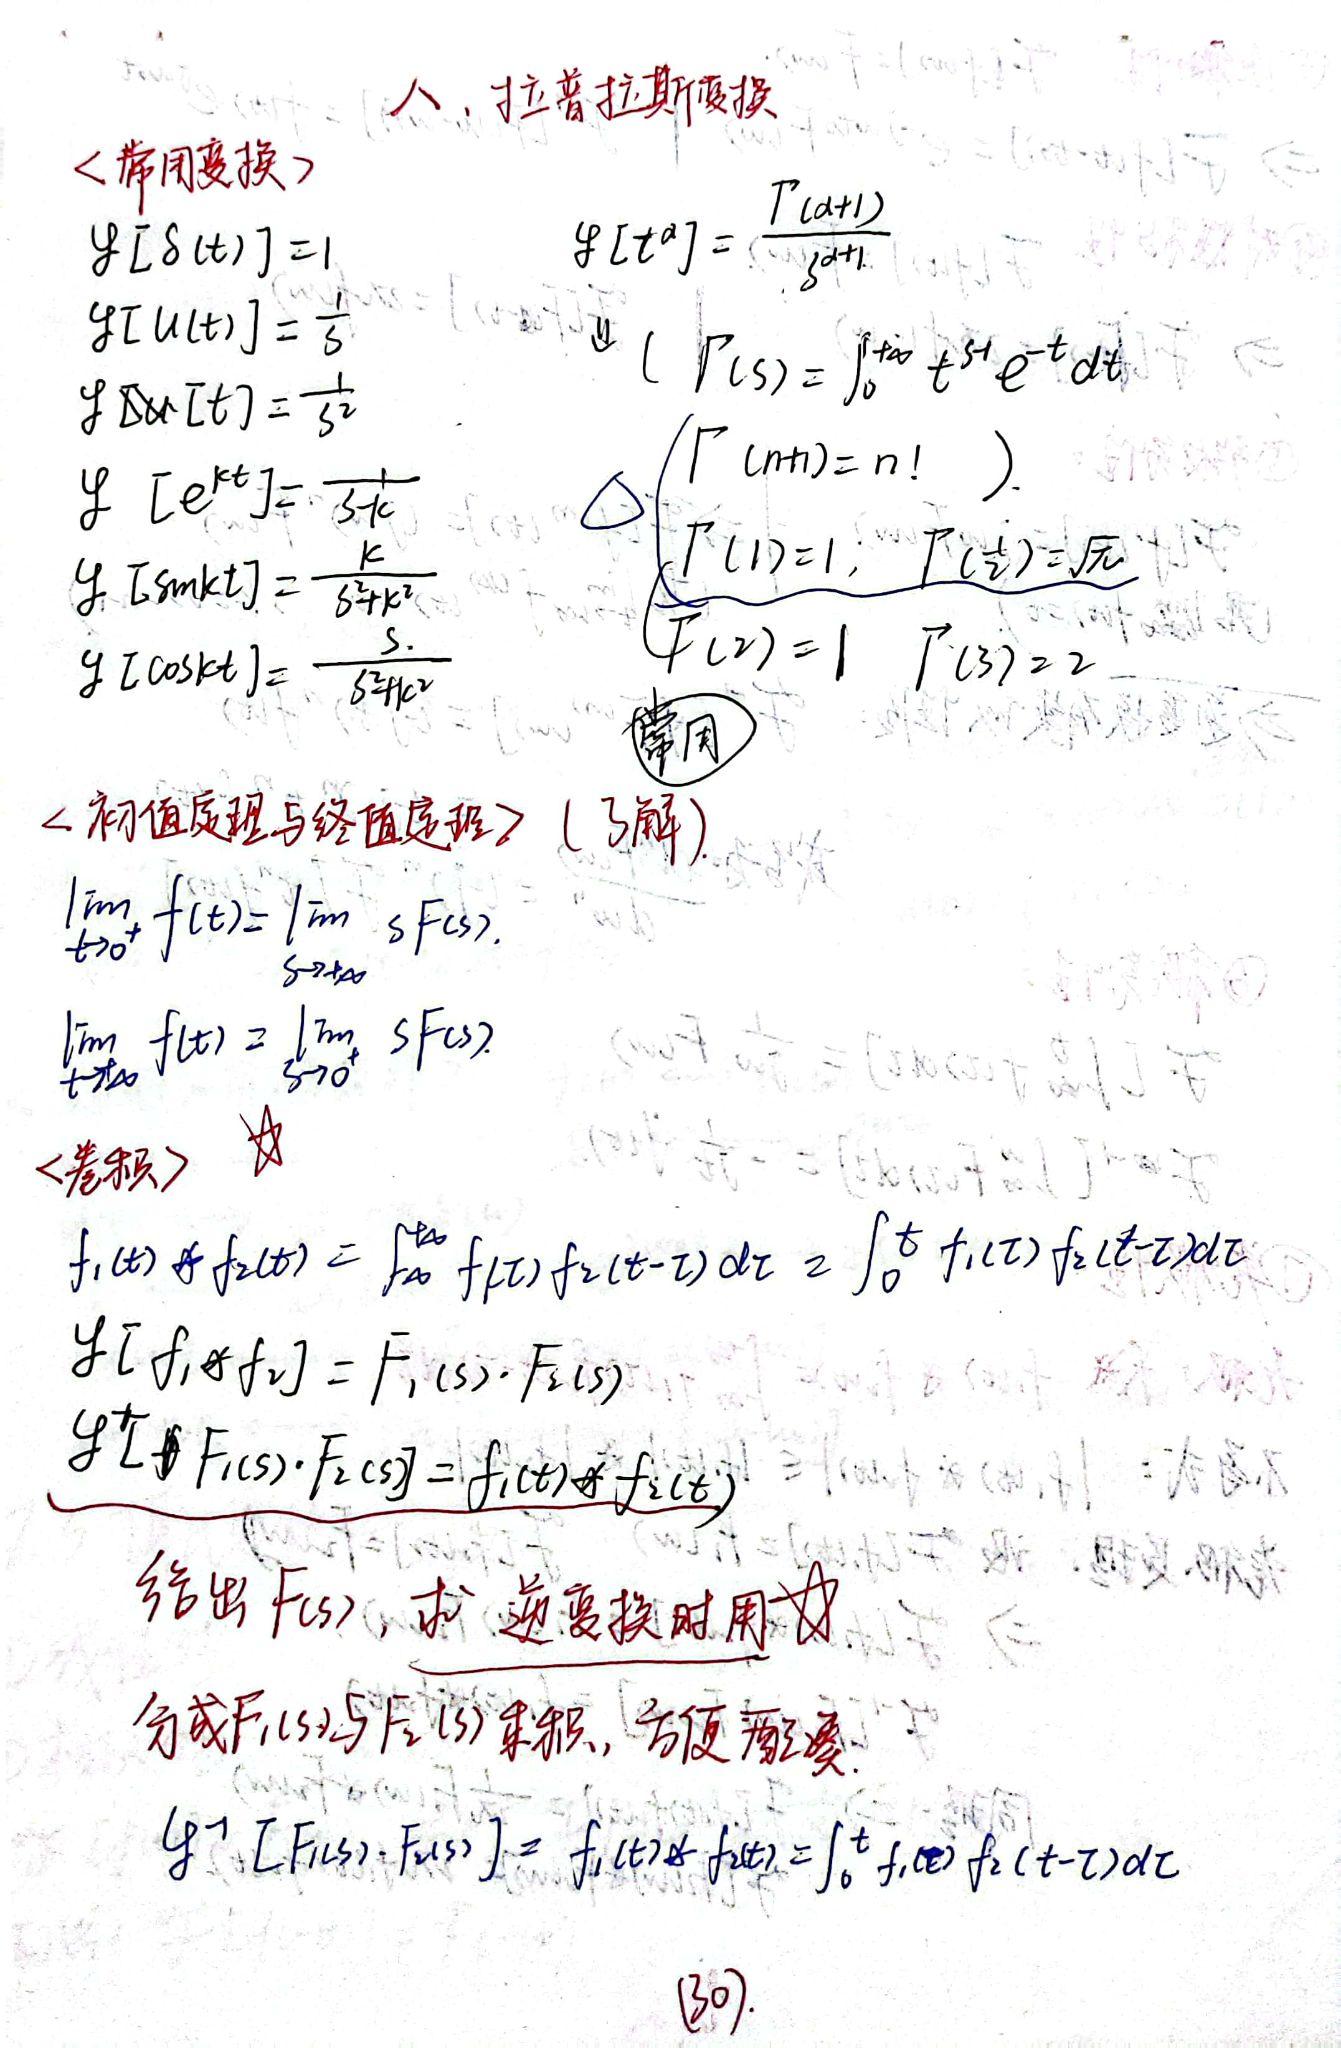 八、拉普拉斯变换
<常用变换>
𝓛[δ(t)]=1
𝓛[u(t)]=1/s
𝓛[t]=1/s²
𝓛[e^{kt}]=1/(s-k)
𝓛[sinkt]=k/(s²+k²)
𝓛[coskt]=s/(s²+k²)
𝓛[t^α]=Γ(α+1)/s^{α+1}
⇓ (Γ(s)=∫₀^{+∞} t^{s-1} e^{-t} dt
Γ(n+1)=n! ).
△ Γ(1)=1; Γ(1/2)=√π
Γ(2)=1 Γ(3)=2
常用
<初值定理与终值定理> (了解).
lim_{t→0⁺} f(t)=lim_{s→+∞} sF(s).
lim_{t→+∞} f(t)=lim_{s→0⁺} sF(s).
<卷积> ☆
f₁(t)*f₂(t)=∫_{-∞}^{+∞} f₁(τ)f₂(t-τ)dτ=∫₀^t f₁(τ)f₂(t-τ)dτ
𝓛[f₁*f₂]=F₁(s)·F₂(s)
𝓛⁻¹[F₁(s)·F₂(s)]=f₁(t)*f₂(t)
给出F(s),求逆变换时用☆
分成F₁(s)与F₂(s)乘积,方便配凑.
𝓛⁻¹[F₁(s)·F₂(s)]=f₁(t)*f₂(t)=∫₀^t f₁(τ)f₂(t-τ)dτ
(30).